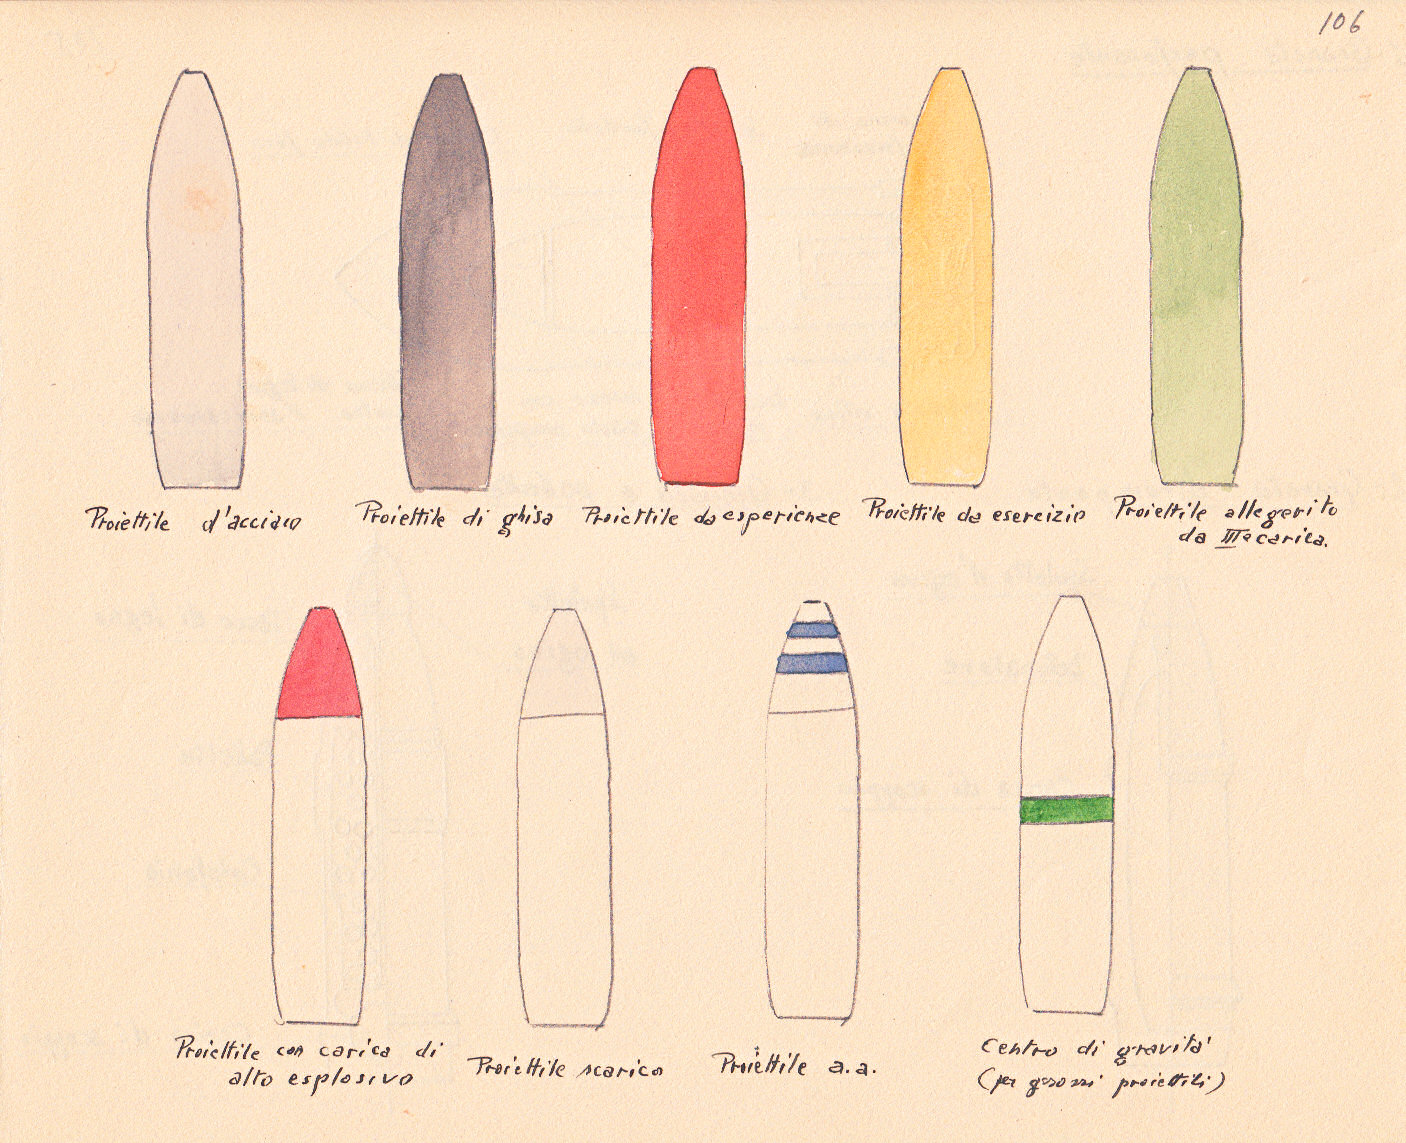 106
Proiettile d'acciaio
Proiettile di ghisa
Proiettile da esperienze
Proiettile da esercizio
Proiettile allegerito
da IIIa carica.
Proiettile con carica di
alto esplosivo
Proiettile scarico
Proiettile a.a.
Centro di gravità
(per grossi proiettili)